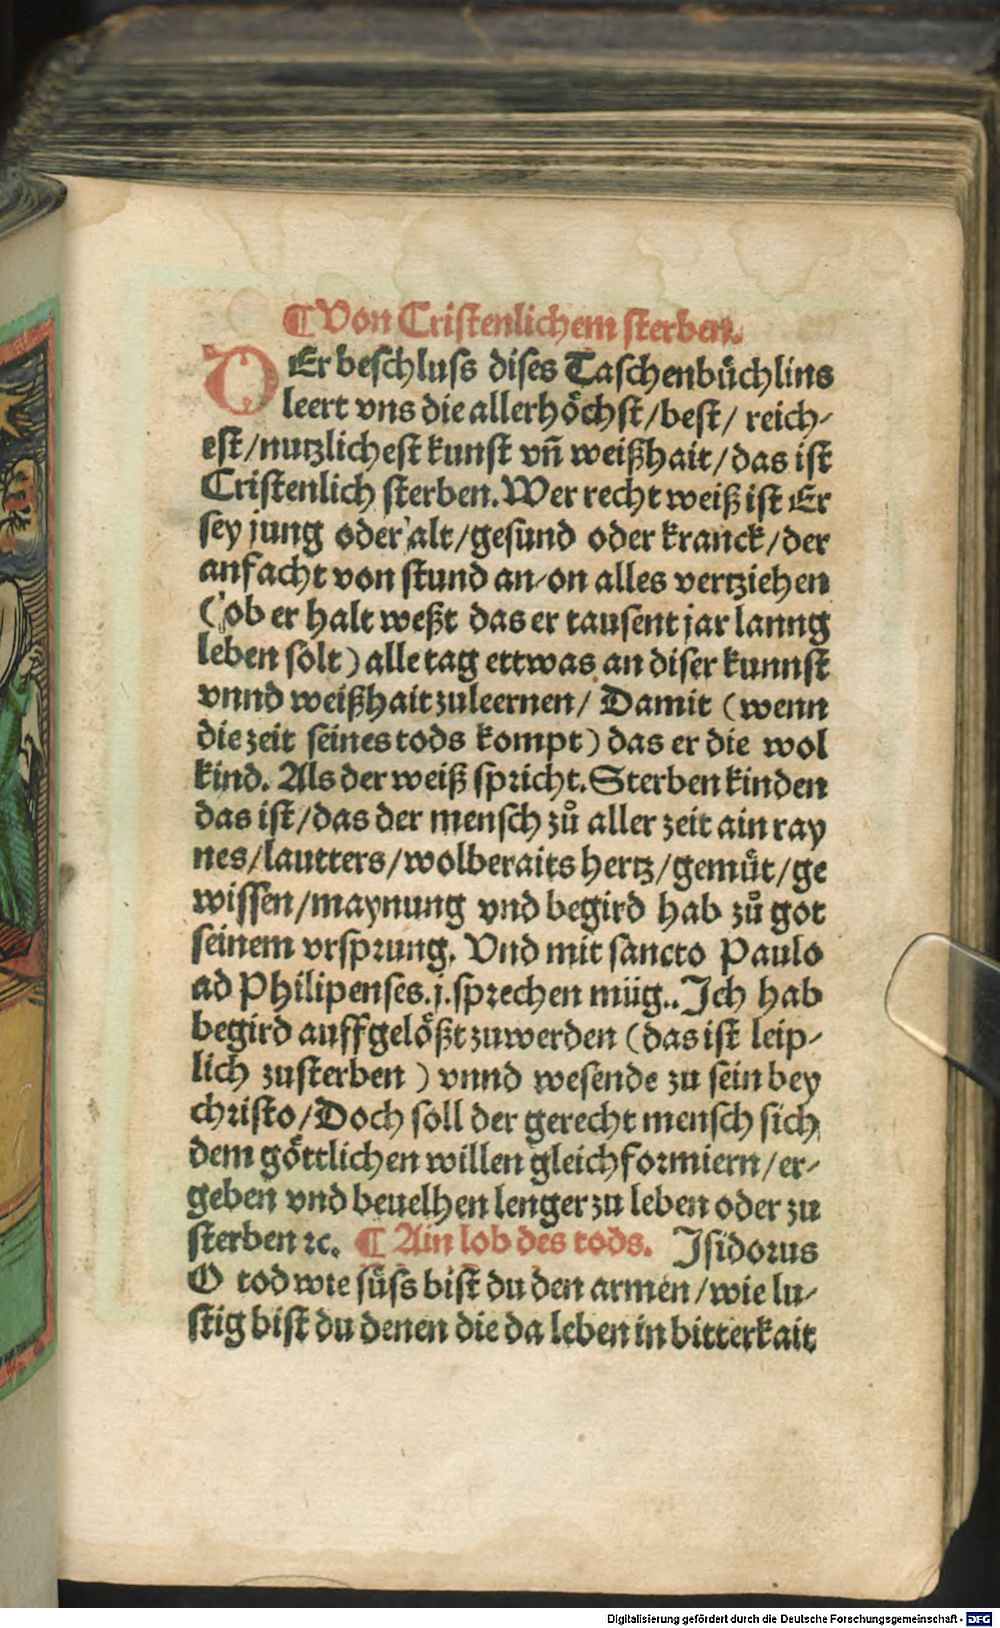 ¶ Von Cristenlichem sterben.
DEr beschluss dises Taschenbüchlins
leert vns die allerhöchst/best/ reich-
est/nutzlichest kunst vn̄ weißhait/das ist
Cristenlich sterben. Wer recht weiß ist Er
sey jung oder alt/gesund oder kranck/der
anfacht von stund an/on alles vertziehen
(ob er halt weßt das er tausent jar lanng
leben solt) alle tag ettwas an diser kunnst
vnnd weißhait zuleernen/ Damit (wenn
die zeit seines tods kompt) das er die wol
kind. Als der weiß spricht. Sterben kinden
das ist/das der mensch zů aller zeit ain ray
nes/lautters/wolberaits hertz/gemüt/ge
wissen/maynung vnd begird hab zů got
seinem vrsprung. Vnd mit sancto Paulo
ad Philipenses.j.sprechen müg.. Ich hab
begird auffgelößt zuwerden (das ist leip-
lich zusterben) vnnd wesende zu sein bey
christo/Doch soll der gerecht mensch sich
dem göttlichen willen gleichformiern/er-
geben vnd beuelhen lenger zu leben oder zu
sterben ꝛc. ¶ Ain lob des tods. Isidorus
O tod wie süss bist du den armen/wie lu-
stig bist du denen die da leben in bitterkait
Digitalisierung gefördert durch die Deutsche Forschungsgemeinschaft - DFG